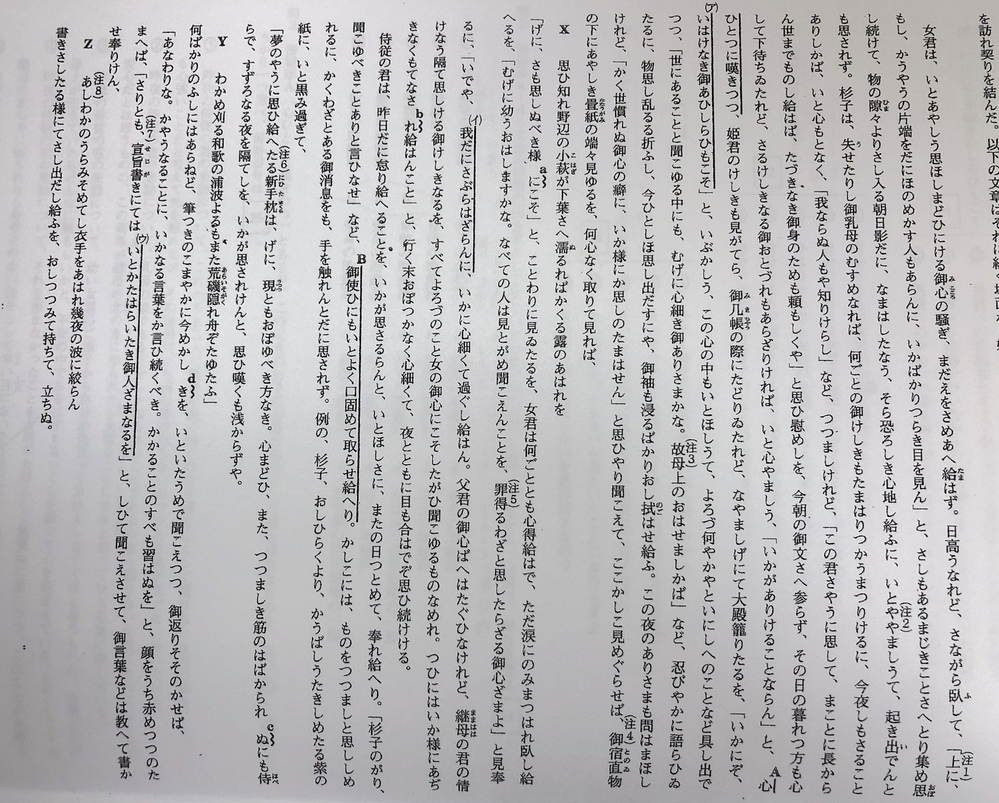 を訪れ契りを結んだ。以下の文章はそれに続く場
女君は、いとあやしう思ほしまどひにける御心の騒ぎ、まだえをさめあへ給はず。日高うなれど、さながら臥して、「上に、
もし、かうやうの片端をだにほのめかす人もあらんに、いかばかりつらき目を見ん」と、さしもあるまじきことさへとり集め思
し続けて、物の隙々よりさし入る朝日影だに、なまはしたなう、そら恐ろしき心地し給ふに、いとややましうて、起き出でんと
も思されず。杉子は、失せたりし御乳母のむすめなれば、何ごとの御けしきもたまはりつかうまつりけるに、今夜しもさること
ありしかば、いと心もとなく、「我ならぬ人もや知りけらし」など、つつましけれど、「この君さやうに思して、まことに長から
ん世までものし給はば、たづきなき御身のためも頼もしくや」と思ひ慰めしを、今朝の御文さへ参らず、その日の暮れつ方も心
して下待ちゐたれど、さるけしきなる御おとづれもあらざりければ、いと心やましう、「いかがありけることならん」と、A心
ひとつに嘆きつつ、姫君のけしきも見がてら、御几帳の際にたどりゐたれど、なやましげにて大殿籠りたるを、「いかにぞ、
(ア)いはけなき御あひしらひもこそ」と、いぶかしう、この心の中もいとほしうて、よろづ何やかやといにしへのことなど具し出で
つつ、「世にあることと聞こゆる中にも、むげに心細き御ありさまかな。故母上のおはせましかば」など、忍びやかに語らひゐ
たるに、物思し乱るる折ふし、今ひとしほ思し出だすにや、御袖も浸るばかりおし拭はせ給ふ。この夜のありさまも問はまほし
けれど、「かく世慣れぬ御心の癖に、いか様にか思しのたまはせん」と思ひやり聞こえて、ここかしこ見めぐらせば、御宿直物
の下にあやしき畳紙の端々見ゆるを、何心なく取りて見れば、
X 思ひ知れ野辺の小萩が下葉さへ濡るればかくる露のあはれを
「げに、さも思しぬべき様aにこそ」と、ことわりに見ゐたるを、女君は何ごととも心得給はで、ただ涙にのみまつはれ臥し給
へるを、「むげに幼うおはしますかな。なべての人は見とがめ聞こえんことを、罪得るわざと思したらざる御心ざまよ」と見奉
るに、「いでや、(イ)我だにさぶらはざらんに、いかに心細くて過ぐし給はん。父君の御心ばへはたぐひなけれど、継母の君の情
けなう隔て思しける御けしきなるを、すべてよろづのこと女の御心にこそしたがひ聞こゆるものなめれ。つひにはいか様にあぢ
きなくもてなさbれ給はんこと」と、行く末おぼつかなく心細くて、夜とともに目も合はでぞ思ひ続けける。
侍従の君は、昨日だに怠り給へることを、いかが思さるらんと、いとほしさに、またの日つとめて、奉れ給へり。「杉子のがり、
聞こゆべきことありと言ひなせ」など、B御使ひにもいとよく口固めて取らせ給へり。かしこには、ものをつつましと思ししめ
れるに、かくわざとある御消息をも、手を触れんとだに思されず。例の、杉子、おしひらくより、かうばしうたきしめたる紫の
紙に、いと黒み過ぎて、
「夢のやうに思ひ給へたる新手枕は、げに、現ともおぼゆべき方なき。心まどひ、また、つつましき筋のはばかられcぬにも侍
らで、すずろなる夜を隔てしを、いかが思されけんと、思ひ嘆くも浅からずや。
Y わかめ刈る和歌の浦波よるもまた荒磯隠れ舟ぞたゆたふ」
何ばかりのふしにはあらねど、筆つきのこまやかに今めかしdきを、いといたうめで聞こえつつ、御返りそそのかせば、
「あなわりな。かやうなることに、いかなる言葉をか言ひ続くべき。かかることのすべも習はぬを」と、顔をうち赤めつつのた
まへば、「さりとも、宣旨書きにては(ウ)いとかたはらいたき御人ざまなるを」と、しひて聞こえさせて、御言葉などは教へて書か
せ奉りけん、
Z あしわかのうらみそめてし衣手をあはれ幾夜の波に絞らん
書きさしたる様にてさし出だし給ふを、おしつつみて持ちて、立ちぬ。
(注1)
(注2)
(注3)
(注4)
(注5)
(注6)
(注7)
(注8)